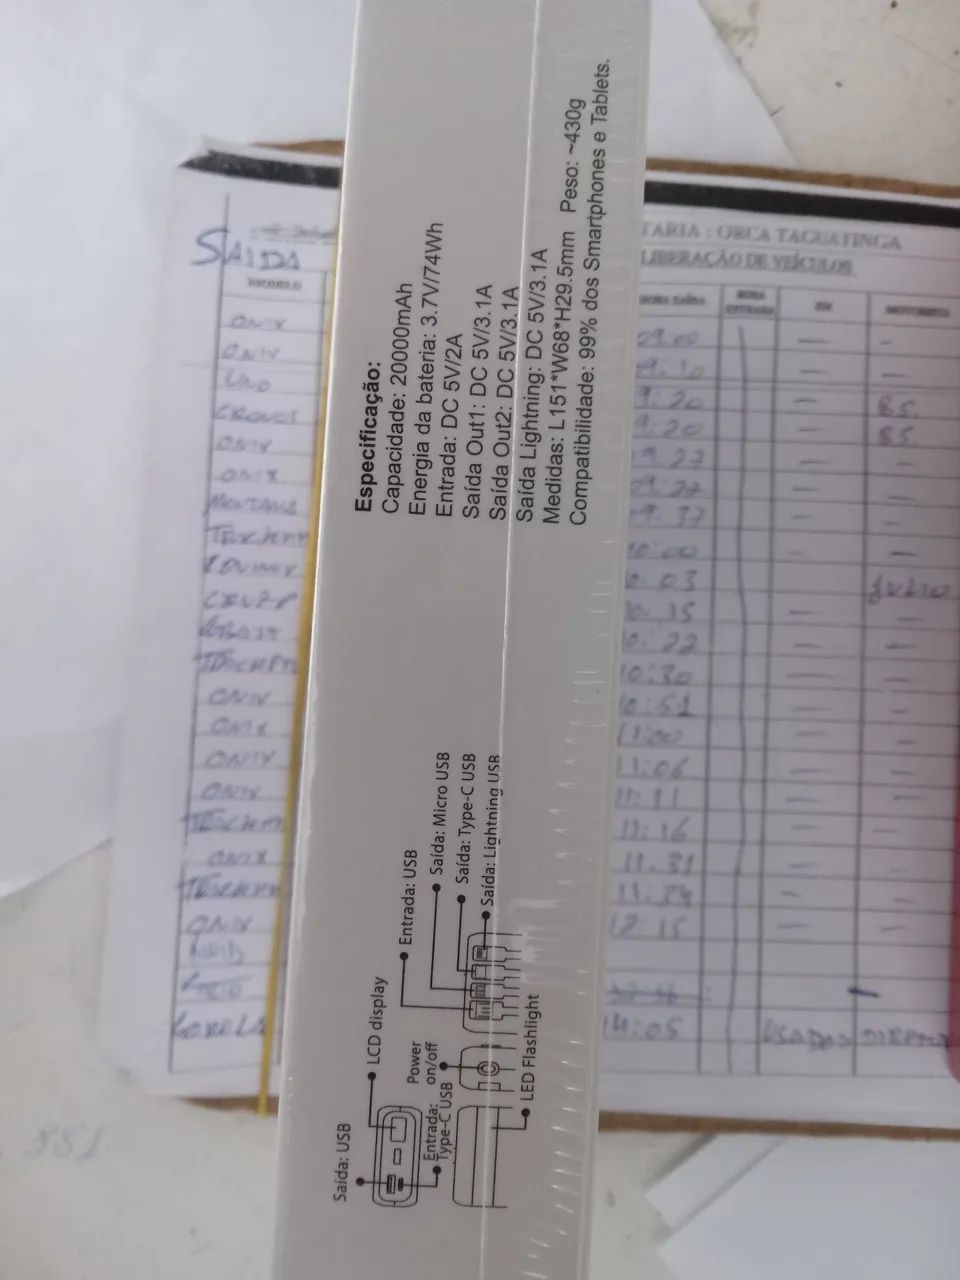 Especificação:
Capacidade: 20000mAh
Energia da bateria: 3.7V/74Wh
Entrada: DC 5V/2A
Saída Out1: DC 5V/3.1A
Saída Out2: DC 5V/3.1A
Saída Lightning: DC 5V/3.1A
Medidas: L151*W68*H29.5mm Peso: ~430g
Compatibilidade: 99% dos Smartphones e Tablets.
Saída: USB
LCD display
Entrada: Type-C USB
Power on/off
Entrada: USB
Saída: Micro USB
Saída: Type-C USB
Saída: Lightning USB
LED Flashlight
TARIA : ORCA TAGUATINGA
LIBERAÇÃO DE VEÍCULOS
SAIDA
HORA SAÍDA HORA ENTRADA KM MOTORISTA
ONIX 09:00
ONIX 9:10
UNO 9:20 BS.
CRONOS 9:20 BS.
ONIX 9:27
ONIX 09:27
MONTANA 9:37
TRACKER 10:00
EQUINOX 10:03 JULIO
CRUZE 10:15
10:22
TRACKER 10:30
ONIX 10:51
ONIX 11:00
ONIX 11:06
ONIX 11:11
TRACKER 11:16
ONIX 11:31
TRACKER 11:34
ONIX 12:15
14:05 USADOS